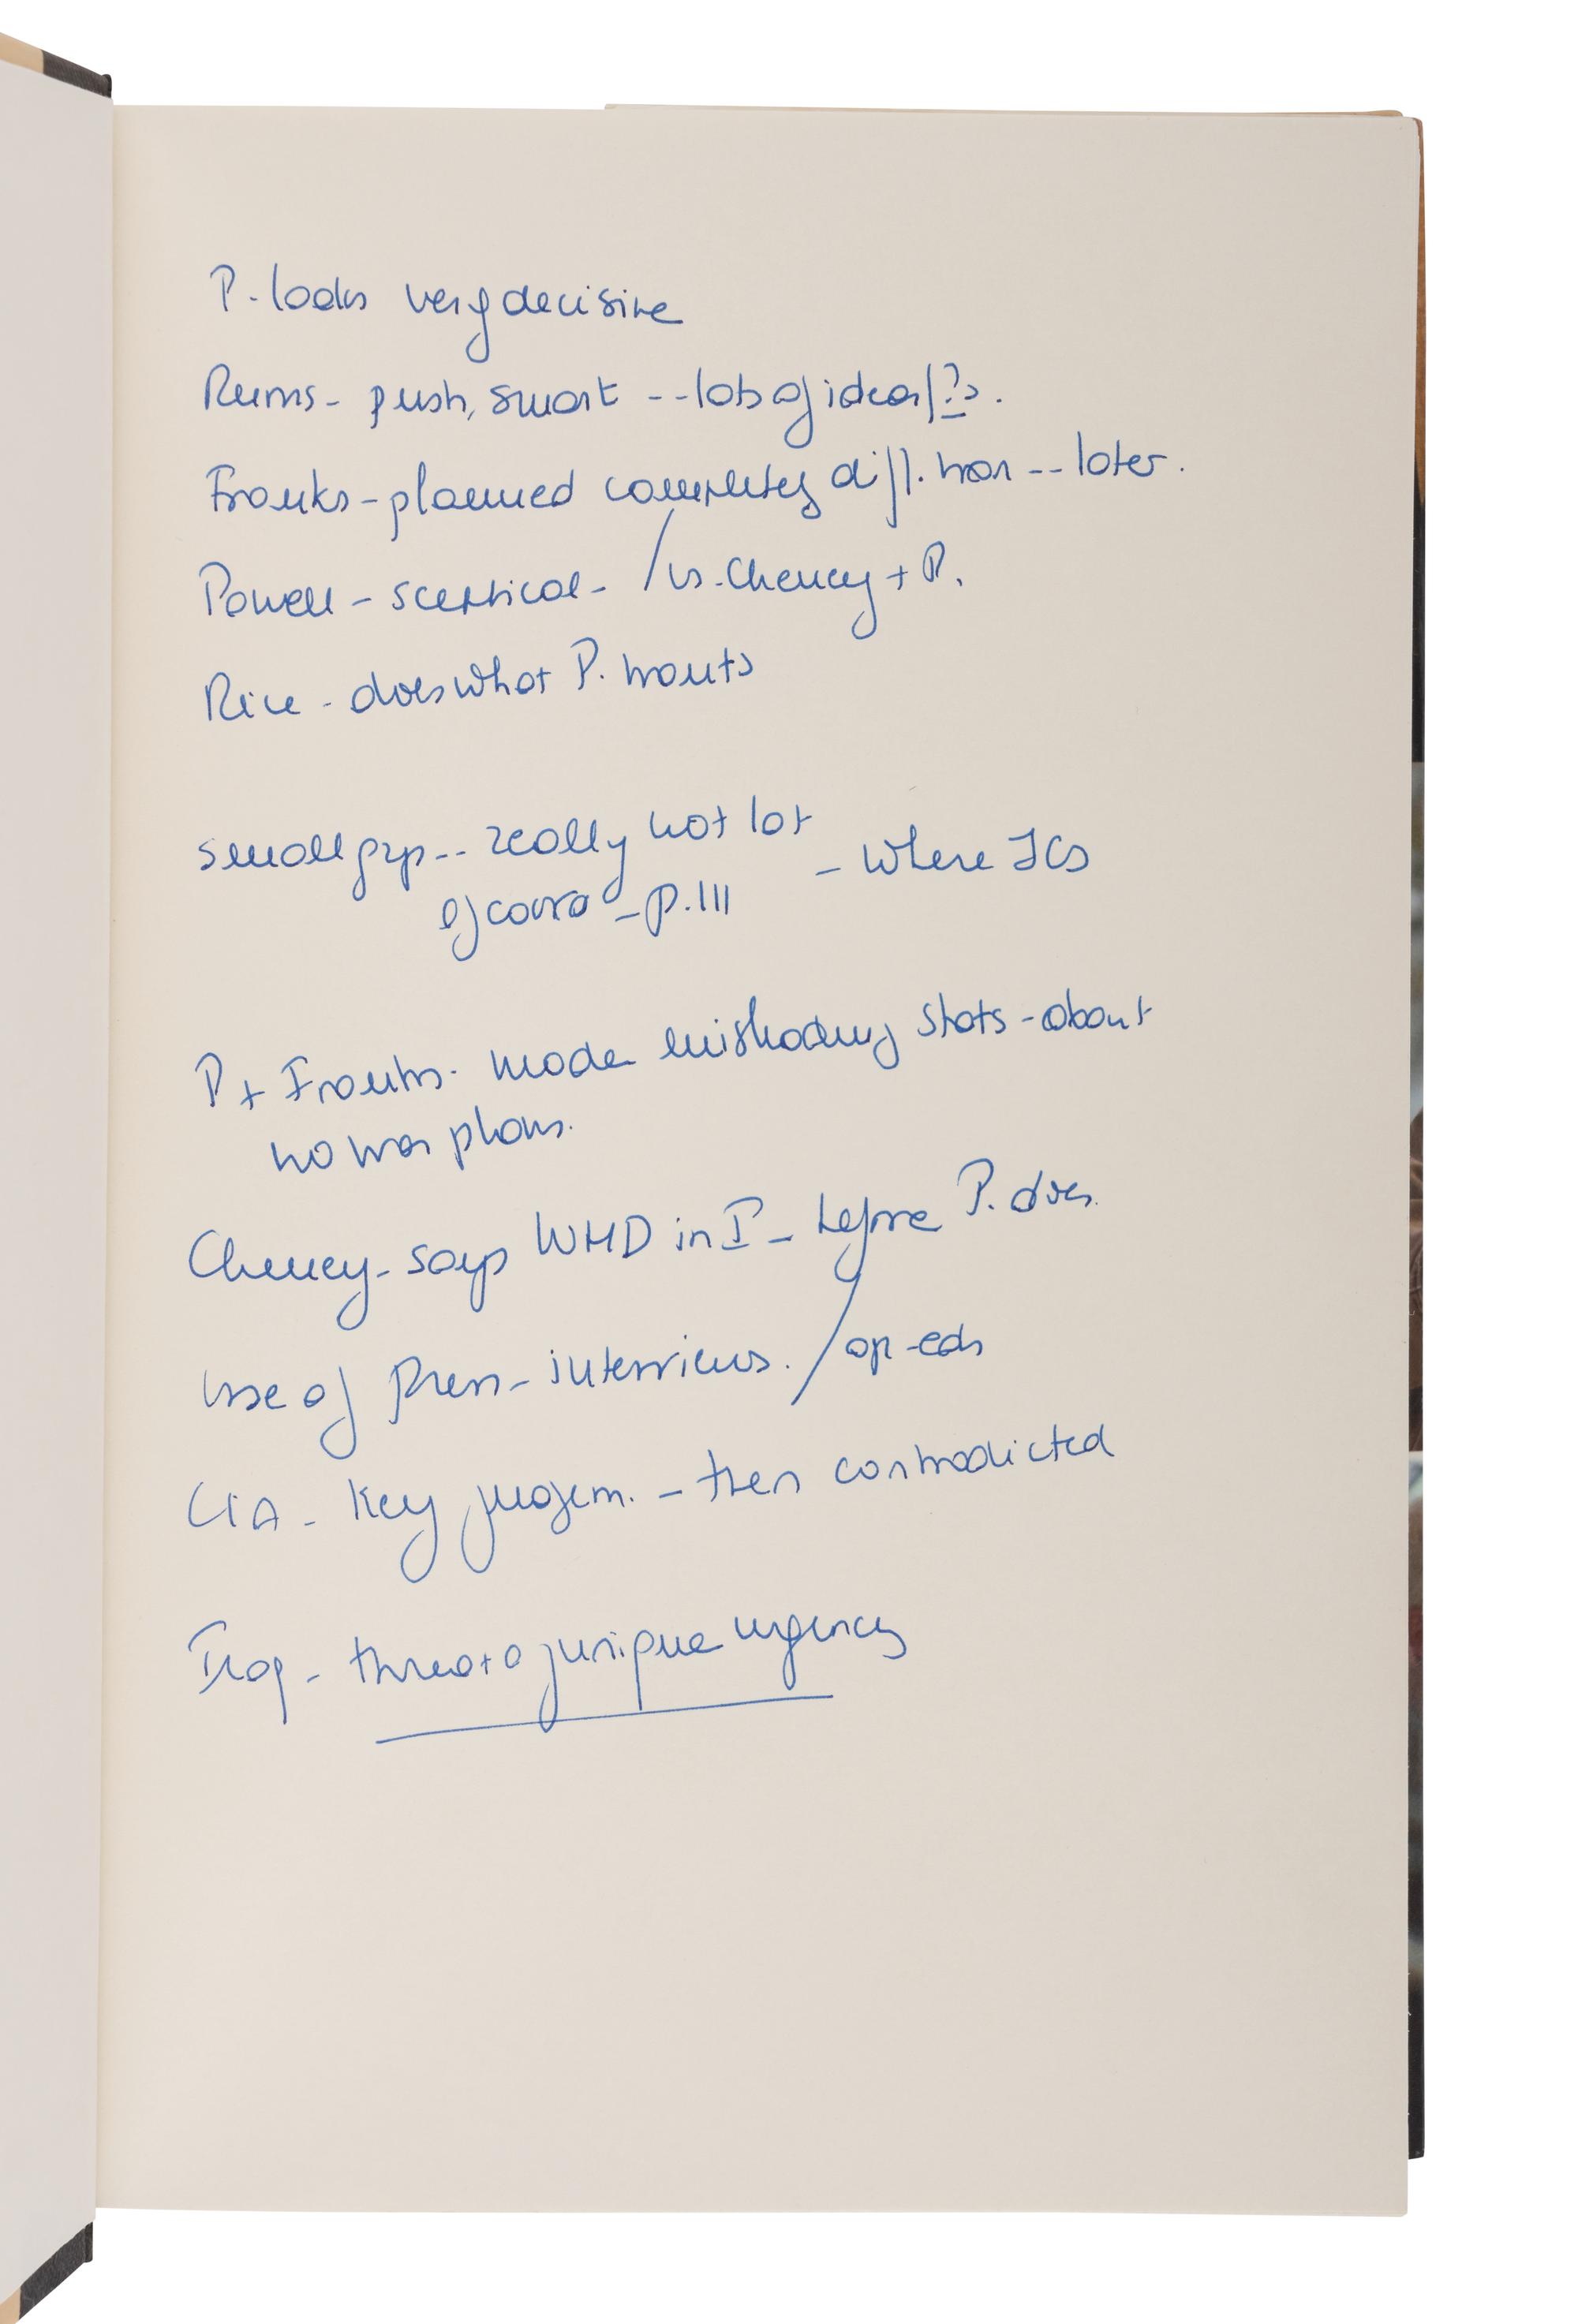 P. looks very decisive
Rums - push, smart -- lots of ideas/?s.
Franks - planned completely diff. war -- later.
Powell - sceptical - / vs. Cheney + P.
Rice - does what P. wants
small grp -- really not lot
of coord - p.111 - where JCS
P + Franks - made misleading stats - about
no war plans.
Cheney - says WMD in I - before P. does.
Use of press - interviews. / op-eds
CIA - Key judgem. - then contradicted
Iraq - threat of unique urgency